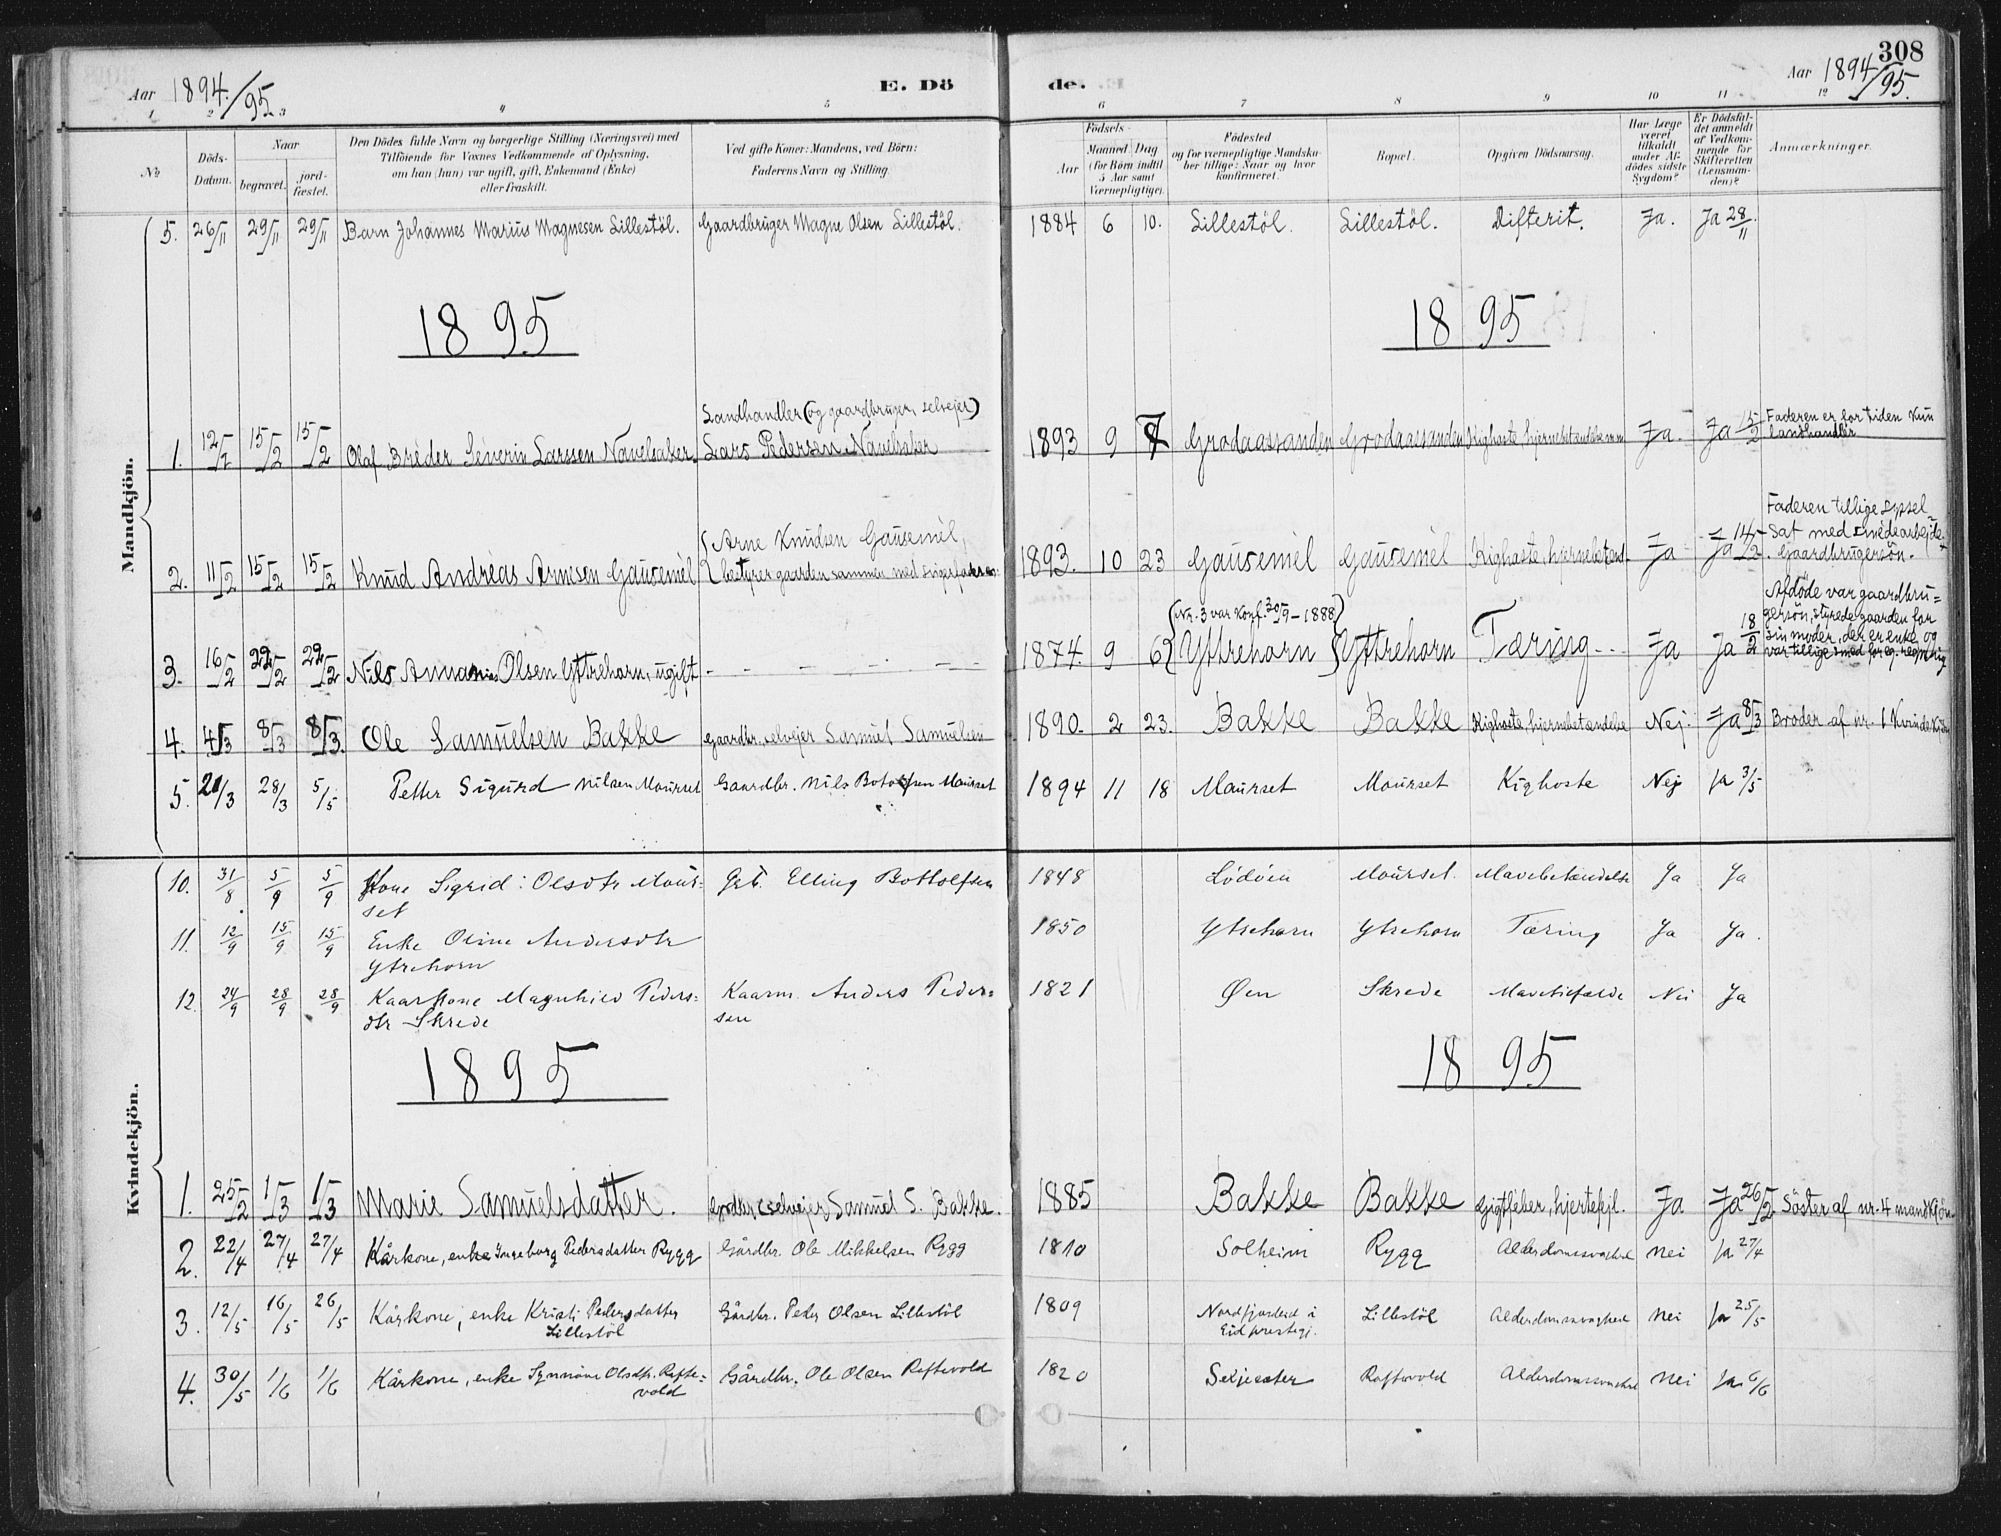 308
Aar 1894./95.
E. Dö
de.
Aar 1894/95.
1 2 3 4 5 6 7 8 9 10 11 12
№
Döds-Datum.
Naar
begravet.
jord-fæstet.
Den Dödes fulde Navn og borgerlige Stilling (Næringsvei) med
Tilföiende for Voxnes Vedkommende af Oplysning,
om han (hun) var ugift, gift, Enkemand (Enke)
eller fraskilt.
Ved gifte Koner: Mandens, ved Börn:
Faderens Navn og Stilling.
Födsels-
Aar
Maaned Dag
(for Börn indtil
5 Aar samt
Værnepligtige).
Födested
og for værnepligtige Mandsku-
ber tillige: Naar og hvor
konfirmeret.
Bopæl.
Opgiven Dödsaarsag.
Har Læge
været
tilkaldt
under Af-
dödes sidste
Sygdom?
Er Dödsfal-
det anmeldt
af Vedkom-
mende for
Skifteretten
(Lensman-
den)?
Anmærkninger.
Mandkjön.
5. 26/11 29/11 29/11 Barn Johannes Marius Magnesen Lillestöl. Gaardbruger Magne Olsen Lillestöl. 1884 6 10. Lillestöl. Lillestöl. Difterit. Ja. Ja 28/11.
1895 1895
Landhandler (og gaardbruger, selvejer)
1. 12/2 15/2 15/2 Olaf Breder Severin Larssen Navelsaker. Lars Pedersen Navelsaker 1893 9 7 Grodaassanden Grodaassanden Kighoste, hjernebetændelse Ja. Ja 15/2 Faderen er for tiden kun
landhandler
2. 11/2 15/2 15/2 Knud Andreas Arnesen Gausemel {Arne Knudsen Gausemel,
bestyrer gaarden sammen med 1893. 10 23 Gausemel Gausemel Kighoste, hjernebetænd. Ja Ja 14/2 Faderen tillige syssel=
sat med smedearbejde.
Gaardbrugersön.
{Nr. 3 var Konf. 30/9-1888}
3. 16/2 22/2 22/2 Nils Ananias Olsen Yttrehorn, ugift - - - - - - 1874. 9 6 Yttrehorn Yttrehorn Tæring - - Ja Ja 18/2 Afdöde var gaardbru=
gersön, styrede gaarden for
sin moder, der er enke og
var tillige
4. 4/3 8/3 8/3. Ole Samuelsen Bakke Gaardbr., selvejer Samuel Samuelsen 1890. 2 23. Bakke Bakke Kighoste, hjernebetændelse Nej. Ja 8/3 Broder af nr. 1 Kvindekjön
5. 21/3 28/3 5/5 Petter Sigurd Nilsen Maurset Gaardbr. Nils Botolfsen Maurset 1894 11 18 Maurset Maurset Kighoste Nej Ja 3/5
Kvindekjön.
10. 31/8 5/9 5/9 Kone Sigrid Olsdtr Maur=
set Gbr. Elling Bottolfsen 1848 Lödöen Maurset. Mavebetændelse Ja Ja
11. 12/9 15/9 15/9 Enke Oline Andersdtr
Ytrehorn 1850 Ytrehorn Ytrehorn Tæring Ja Ja.
12. 24/9 28/9 28/9 Kaarkone Magnhild Peders=
dtr Skrede Kaarm. Anders Peder=
sen 1821 Øen Skrede Nei Ja
1895 1895
1. 25/2 1/3 1/3 Marie Samuelsdatter. Grdbr (selvejer) Samuel S. Bakke. 1885 Bakke Bakke Gigtfeber, hjertefejl. Ja Ja 26/2 Söster af nr. 4 mandkjön
2. 22/4 27/4 27/4 Kårkone, enke Ingeborg Pedersdatter Rygg Gårdbr. Ole Mikkelsen Rygg 1810 Solheim Rygg Alderdomssvaghed Nei Ja 27/4
3. 12/5 16/5 26/5 Kårkone, enke Kristi Pedersdatter
Lillestöl Gårdbr. Peder Olsen Lillestöl 1809 Nordfjordeid i
Eid prestegj. Lillestöl Alderdomssvaghed Nei Ja 25/5
4. 30/5 1/6 1/6 Kårkone, enke Synnöve Olsdtr. Rafte=
vold Gårdbr. Ole Olsen Raftevold 1820 Seljeseter Raftevold Alderdomssvaghed Nei Ja 6/6